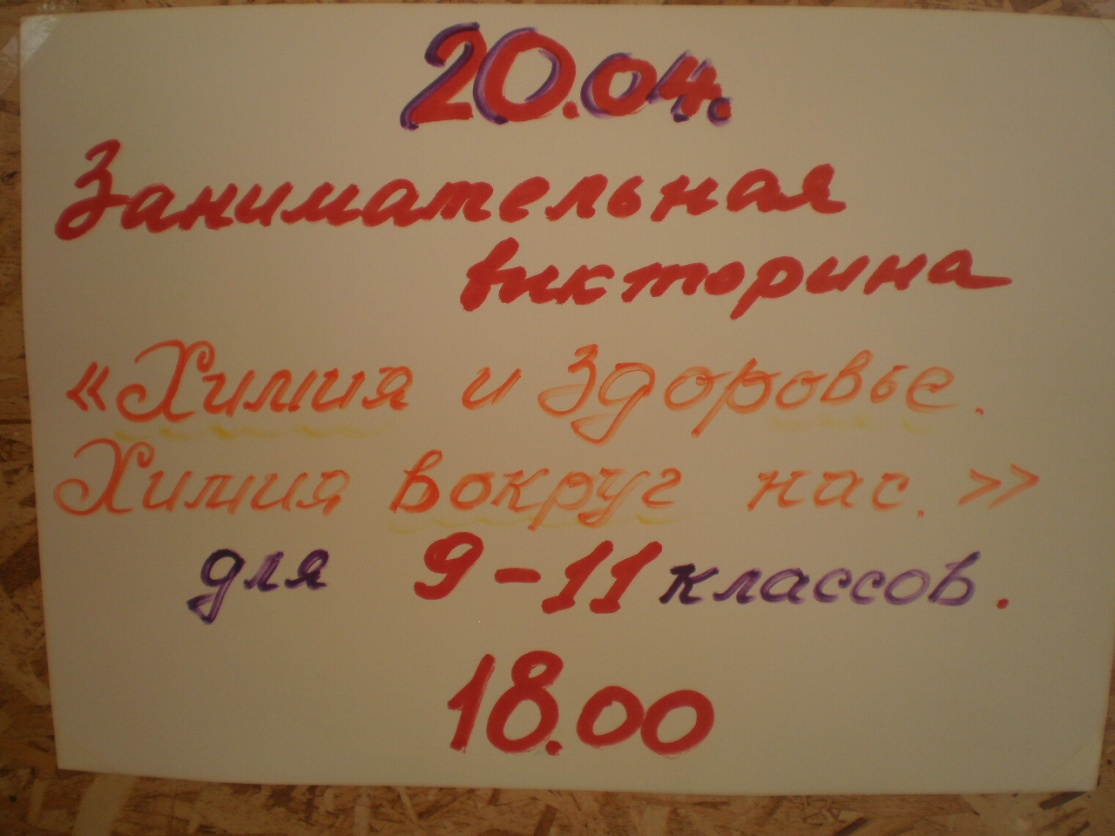 20.04.
Занимательная
викторина
«Химия и Здоровье.
Химия вокруг нас.»
для 9-11 классов.
18.00